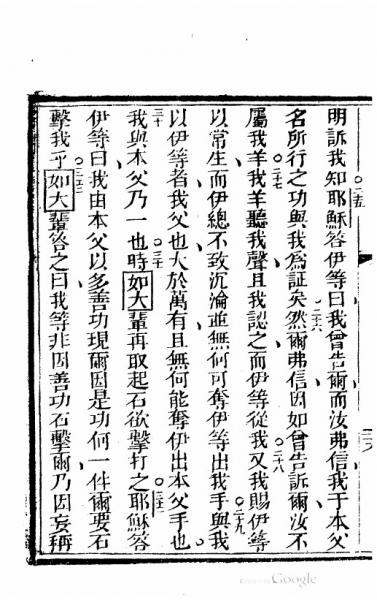 明訴我知耶穌答伊等曰我曾告爾而汝弗信我于本父
名所行之功與我為証矣然爾弗信因如曾告訴爾汝不
屬我羊我羊聽我聲且我認之而伊等從我又我賜伊等
以常生而伊總不致沉淪並無何可奪伊等出我手與我
以伊等者我父也大於萬有且無何能奪伊出本父手也
我與本父乃一也時如大輩再取起石欲擊打之耶穌答
伊等曰我由本父以多善功現爾因是功何一件爾要石
擊我乎如大輩答之曰我等非因善功石擊爾乃因妄稱
二五
二六
二七
二八
二九
三十
三一
三二
三三
Google